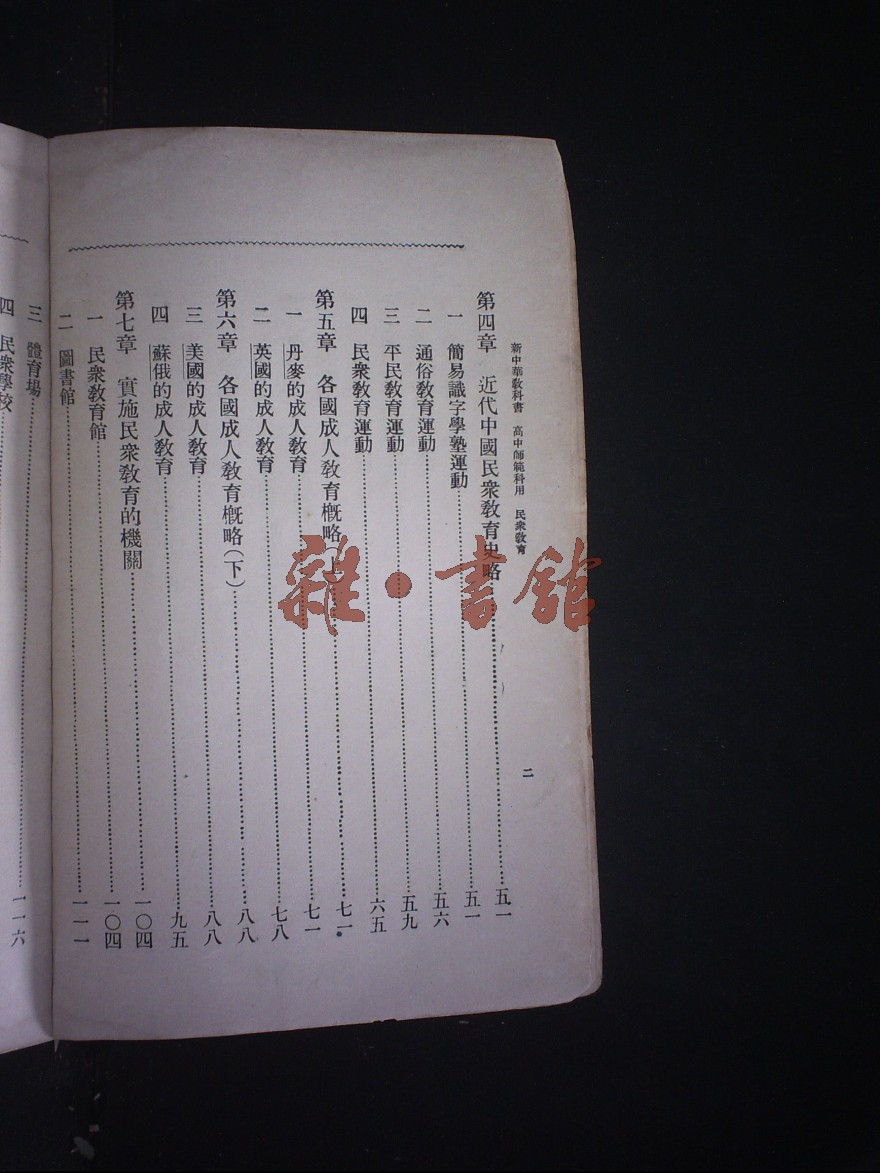 新中華教科書　高中師範科用　民衆教育
二
第四章　近代中國民衆教育史略……五一
一　簡易識字學塾運動……五一
二　通俗教育運動……五六
三　平民教育運動……五九
四　民衆教育運動……六五
第五章　各國成人教育概略(上)……七一
一　丹麥的成人教育……七一
二　英國的成人教育……七八
第六章　各國成人教育概略(下)……八八
三　美國的成人教育……八八
四　蘇俄的成人教育……九五
第七章　實施民衆教育的機關……一〇四
一　民衆教育館……一〇四
二　圖書館……一一一
三　體育場……一一六
四　民衆學校
雜·書館